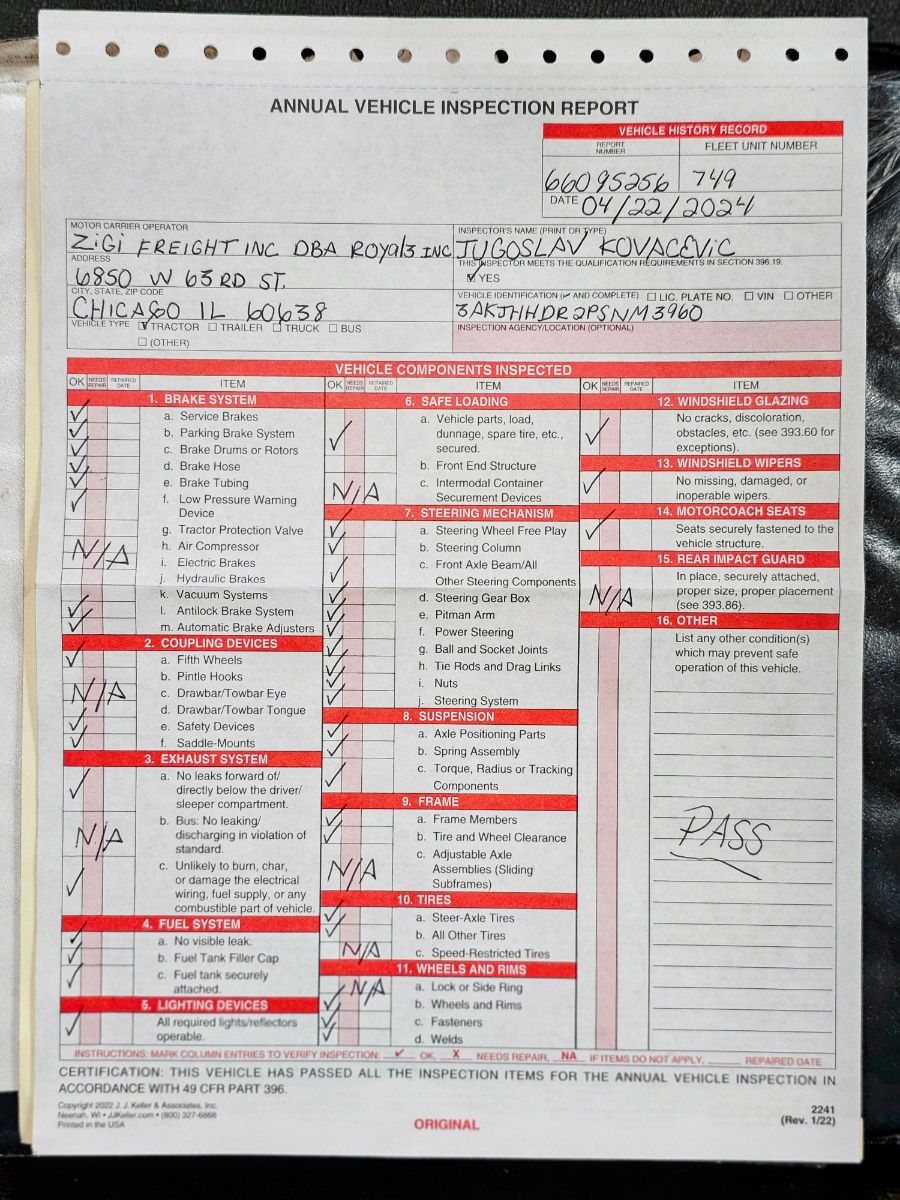 ANNUAL VEHICLE INSPECTION REPORT
VEHICLE HISTORY RECORD
REPORT NUMBER
FLEET UNIT NUMBER
66095256
749
DATE 04/22/2024
MOTOR CARRIER OPERATOR
ZiGi FREIGHT INC DBA ROYAL3 INC
ADDRESS
6850 W 63RD ST.
CITY, STATE, ZIP CODE
CHICAGO IL 60638
VEHICLE TYPE ☑ TRACTOR ☐ TRAILER ☐ TRUCK ☐ BUS
☐ (OTHER)
INSPECTOR'S NAME (PRINT OR TYPE)
JUGOSLAV KOVACEVIC
THIS INSPECTOR MEETS THE QUALIFICATION REQUIREMENTS IN SECTION 396.19.
☑ YES
VEHICLE IDENTIFICATION (✓ AND COMPLETE) ☐ LIC. PLATE NO. ☐ VIN ☐ OTHER
3AKJHHDR2PSNM3960
INSPECTION AGENCY/LOCATION (OPTIONAL)
VEHICLE COMPONENTS INSPECTED
OK NEEDS REPAIR REPAIRED DATE ITEM
1. BRAKE SYSTEM
✓ a. Service Brakes
✓ b. Parking Brake System
✓ c. Brake Drums or Rotors
✓ d. Brake Hose
✓ e. Brake Tubing
✓ f. Low Pressure Warning
Device
g. Tractor Protection Valve
N/A h. Air Compressor
i. Electric Brakes
j. Hydraulic Brakes
✓ k. Vacuum Systems
✓ l. Antilock Brake System
✓ m. Automatic Brake Adjusters
2. COUPLING DEVICES
✓ a. Fifth Wheels
b. Pintle Hooks
N/A c. Drawbar/Towbar Eye
✓ d. Drawbar/Towbar Tongue
✓ e. Safety Devices
✓ f. Saddle-Mounts
3. EXHAUST SYSTEM
✓ a. No leaks forward of/
directly below the driver/
sleeper compartment.
N/A b. Bus: No leaking/
discharging in violation of
standard.
✓ c. Unlikely to burn, char,
or damage the electrical
wiring, fuel supply, or any
combustible part of vehicle.
4. FUEL SYSTEM
✓ a. No visible leak.
✓ b. Fuel Tank Filler Cap
✓ c. Fuel tank securely
attached.
5. LIGHTING DEVICES
✓ All required lights/reflectors
operable.
OK NEEDS REPAIR REPAIRED DATE ITEM
6. SAFE LOADING
✓ a. Vehicle parts, load,
dunnage, spare tire, etc.,
secured.
b. Front End Structure
N/A c. Intermodal Container
Securement Devices
7. STEERING MECHANISM
✓ a. Steering Wheel Free Play
✓ b. Steering Column
✓ c. Front Axle Beam/All
Other Steering Components
✓ d. Steering Gear Box
✓ e. Pitman Arm
✓ f. Power Steering
✓ g. Ball and Socket Joints
✓ h. Tie Rods and Drag Links
✓ i. Nuts
✓ j. Steering System
8. SUSPENSION
✓ a. Axle Positioning Parts
✓ b. Spring Assembly
✓ c. Torque, Radius or Tracking
Components
9. FRAME
✓ a. Frame Members
✓ b. Tire and Wheel Clearance
N/A c. Adjustable Axle
Assemblies (Sliding
Subframes)
10. TIRES
✓ a. Steer-Axle Tires
✓ b. All Other Tires
N/A c. Speed-Restricted Tires
11. WHEELS AND RIMS
N/A a. Lock or Side Ring
✓ b. Wheels and Rims
✓ c. Fasteners
✓ d. Welds
OK NEEDS REPAIR REPAIRED DATE ITEM
12. WINDSHIELD GLAZING
✓ No cracks, discoloration,
obstacles, etc. (see 393.60 for
exceptions).
13. WINDSHIELD WIPERS
✓ No missing, damaged, or
inoperable wipers.
14. MOTORCOACH SEATS
✓ Seats securely fastened to the
vehicle structure.
15. REAR IMPACT GUARD
N/A In place, securely attached,
proper size, proper placement
(see 393.86).
16. OTHER
List any other condition(s)
which may prevent safe
operation of this vehicle.
PASS
INSTRUCTIONS: MARK COLUMN ENTRIES TO VERIFY INSPECTION: ✓ OK, X NEEDS REPAIR, NA IF ITEMS DO NOT APPLY, ____ REPAIRED DATE
CERTIFICATION: THIS VEHICLE HAS PASSED ALL THE INSPECTION ITEMS FOR THE ANNUAL VEHICLE INSPECTION IN
ACCORDANCE WITH 49 CFR PART 396.
Copyright 2022 J. J. Keller & Associates, Inc.
Neenah, WI • JJKeller.com • (800) 327-6868
Printed in the USA
ORIGINAL
2241
(Rev. 1/22)